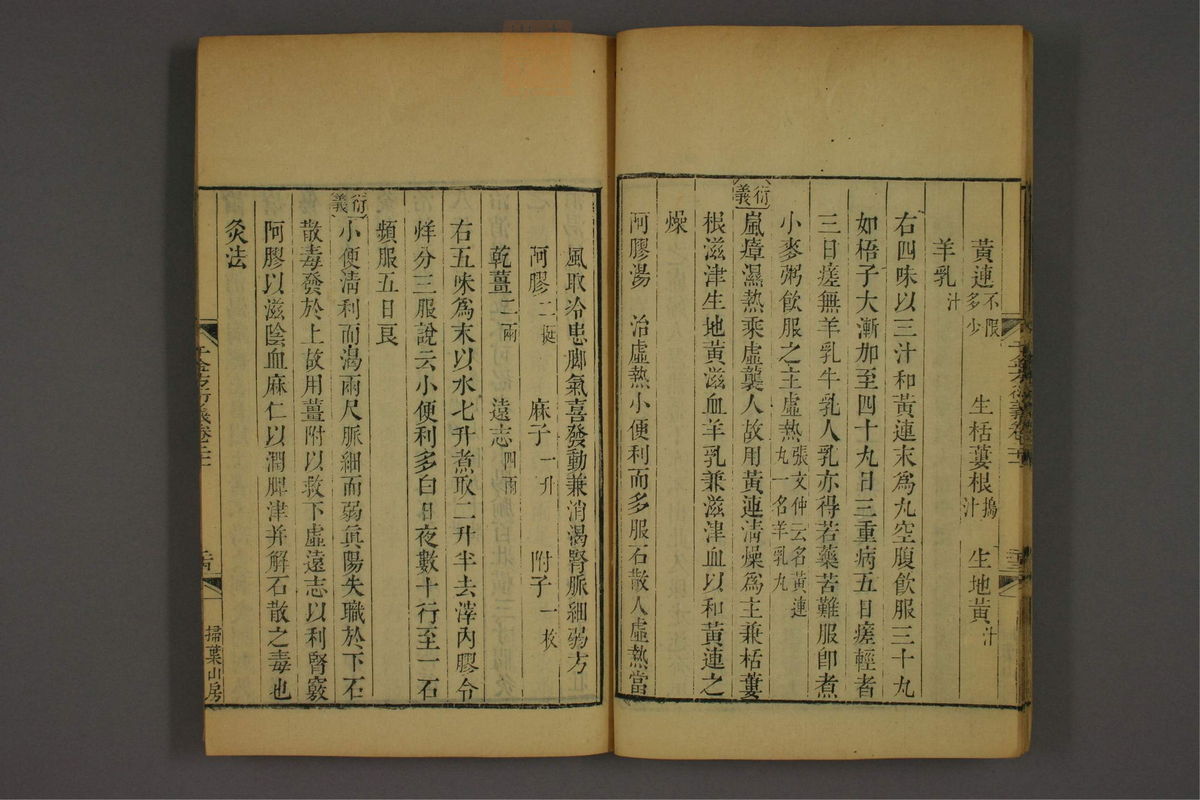 黃連不限多少　生栝蔞根搗汁　生地黃汁
羊乳汁
右四味以三汁和黃連末爲丸空腹飲服三十丸
如梧子大漸加至四十丸日三重病五日瘥輕者
三日瘥無羊乳牛乳人乳亦得若藥苦難服卽煮
小麥粥飲服之主虛熱張文仲云名黃連丸一名羊乳丸
衍義嵐瘴濕熱乘虛襲人故用黃連淸燥爲主兼栝蔞
根滋津生地黃滋血羊乳兼滋津血以和黃連之
燥
阿膠湯　治虛熱小便利而多服石散人虛熱當
風取冷患脚氣喜發動兼消渴腎脈細弱方
阿膠二挺　麻子一升　附子一枚
乾薑二兩　遠志四兩
右五味爲末以水七升煮取二升半去滓內膠令
烊分三服說云小便利多白日夜數十行至一石
頻服五日良
衍義小便淸利而渴兩尺脈細而弱眞陽失職於下石
散毒發於上故用薑附以救下虛遠志以利腎竅
阿膠以滋陰血麻仁以潤脾津并解石散之毒也
灸法
掃葉山房